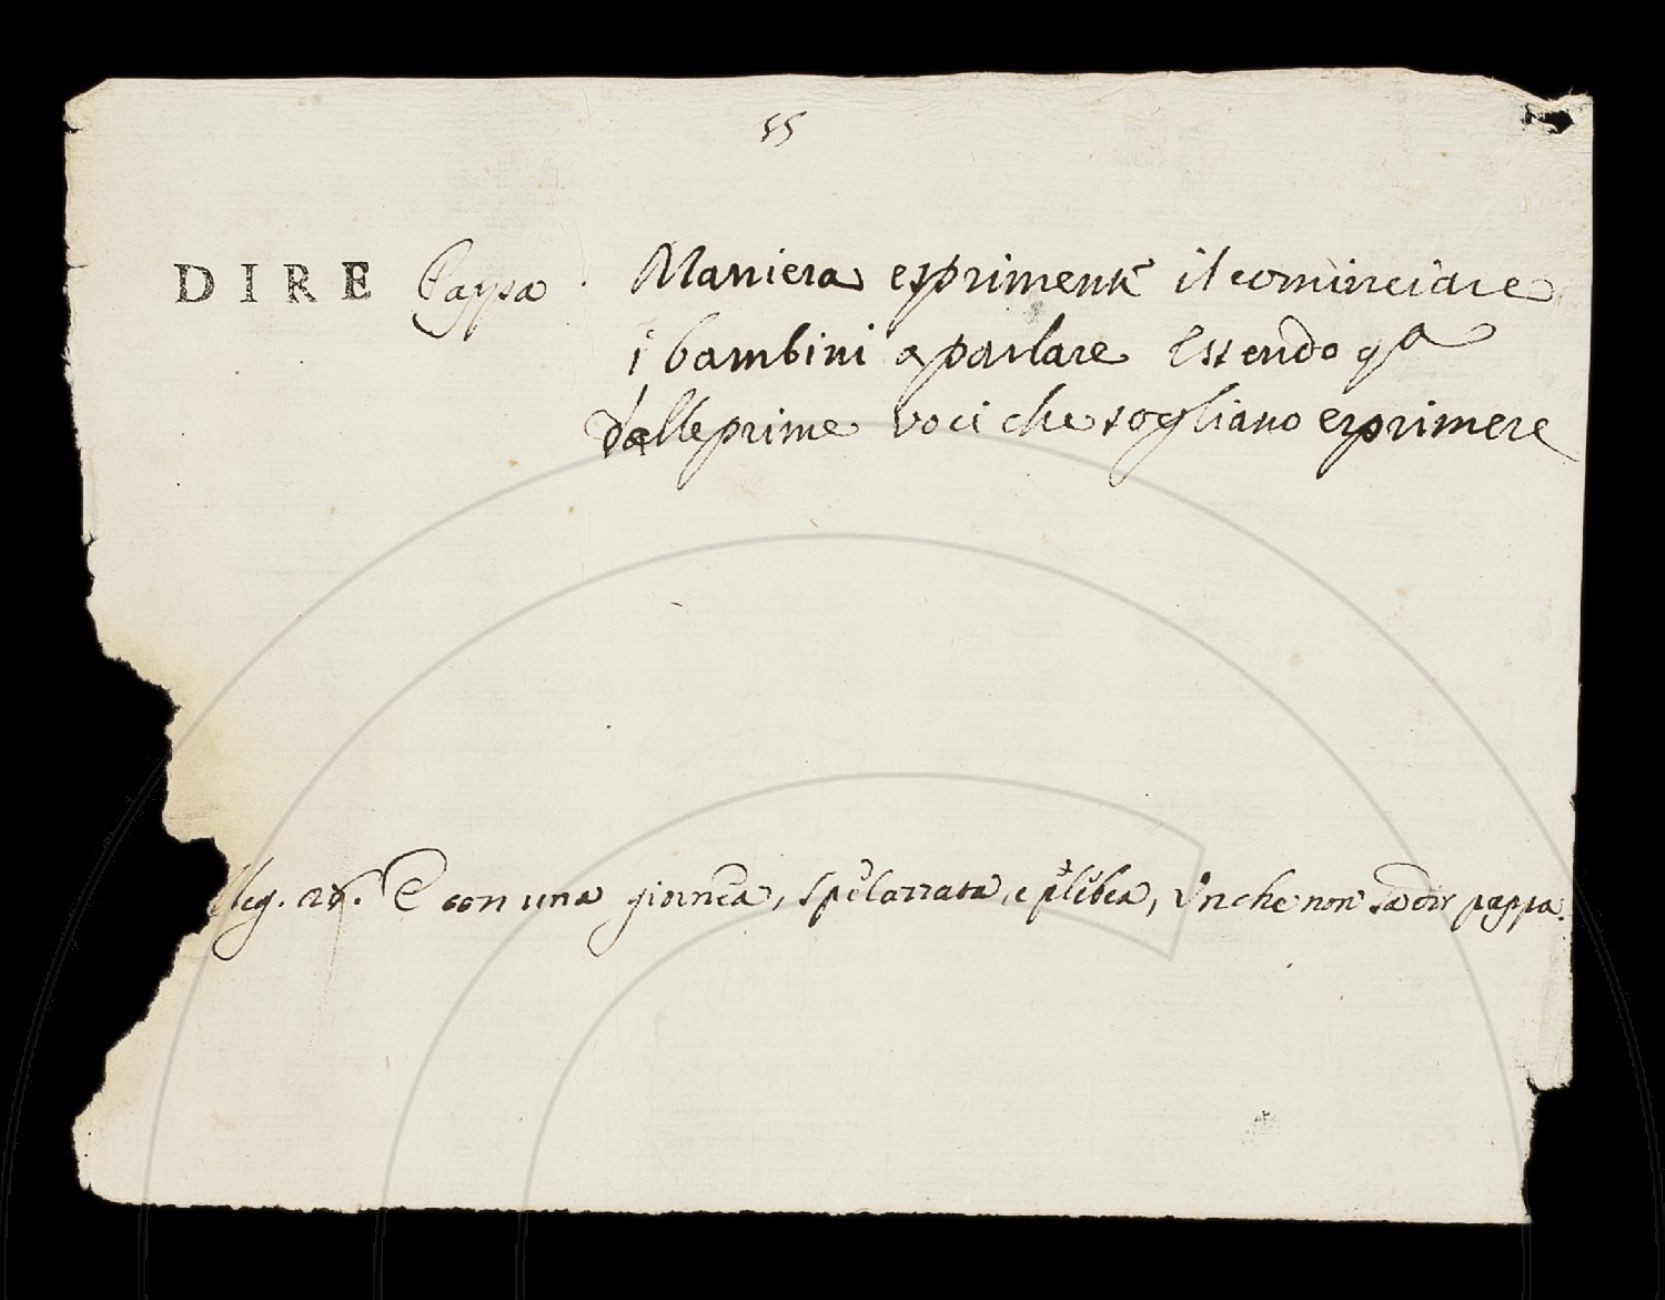 55
DIRE Pappa. Maniera esprimente il cominciare
i bambini a parlare Essendo qa
dalle prime voci che sogliano esprimere
E con una giornea, spelazzata, e plebea, In che non sa dir pappa.